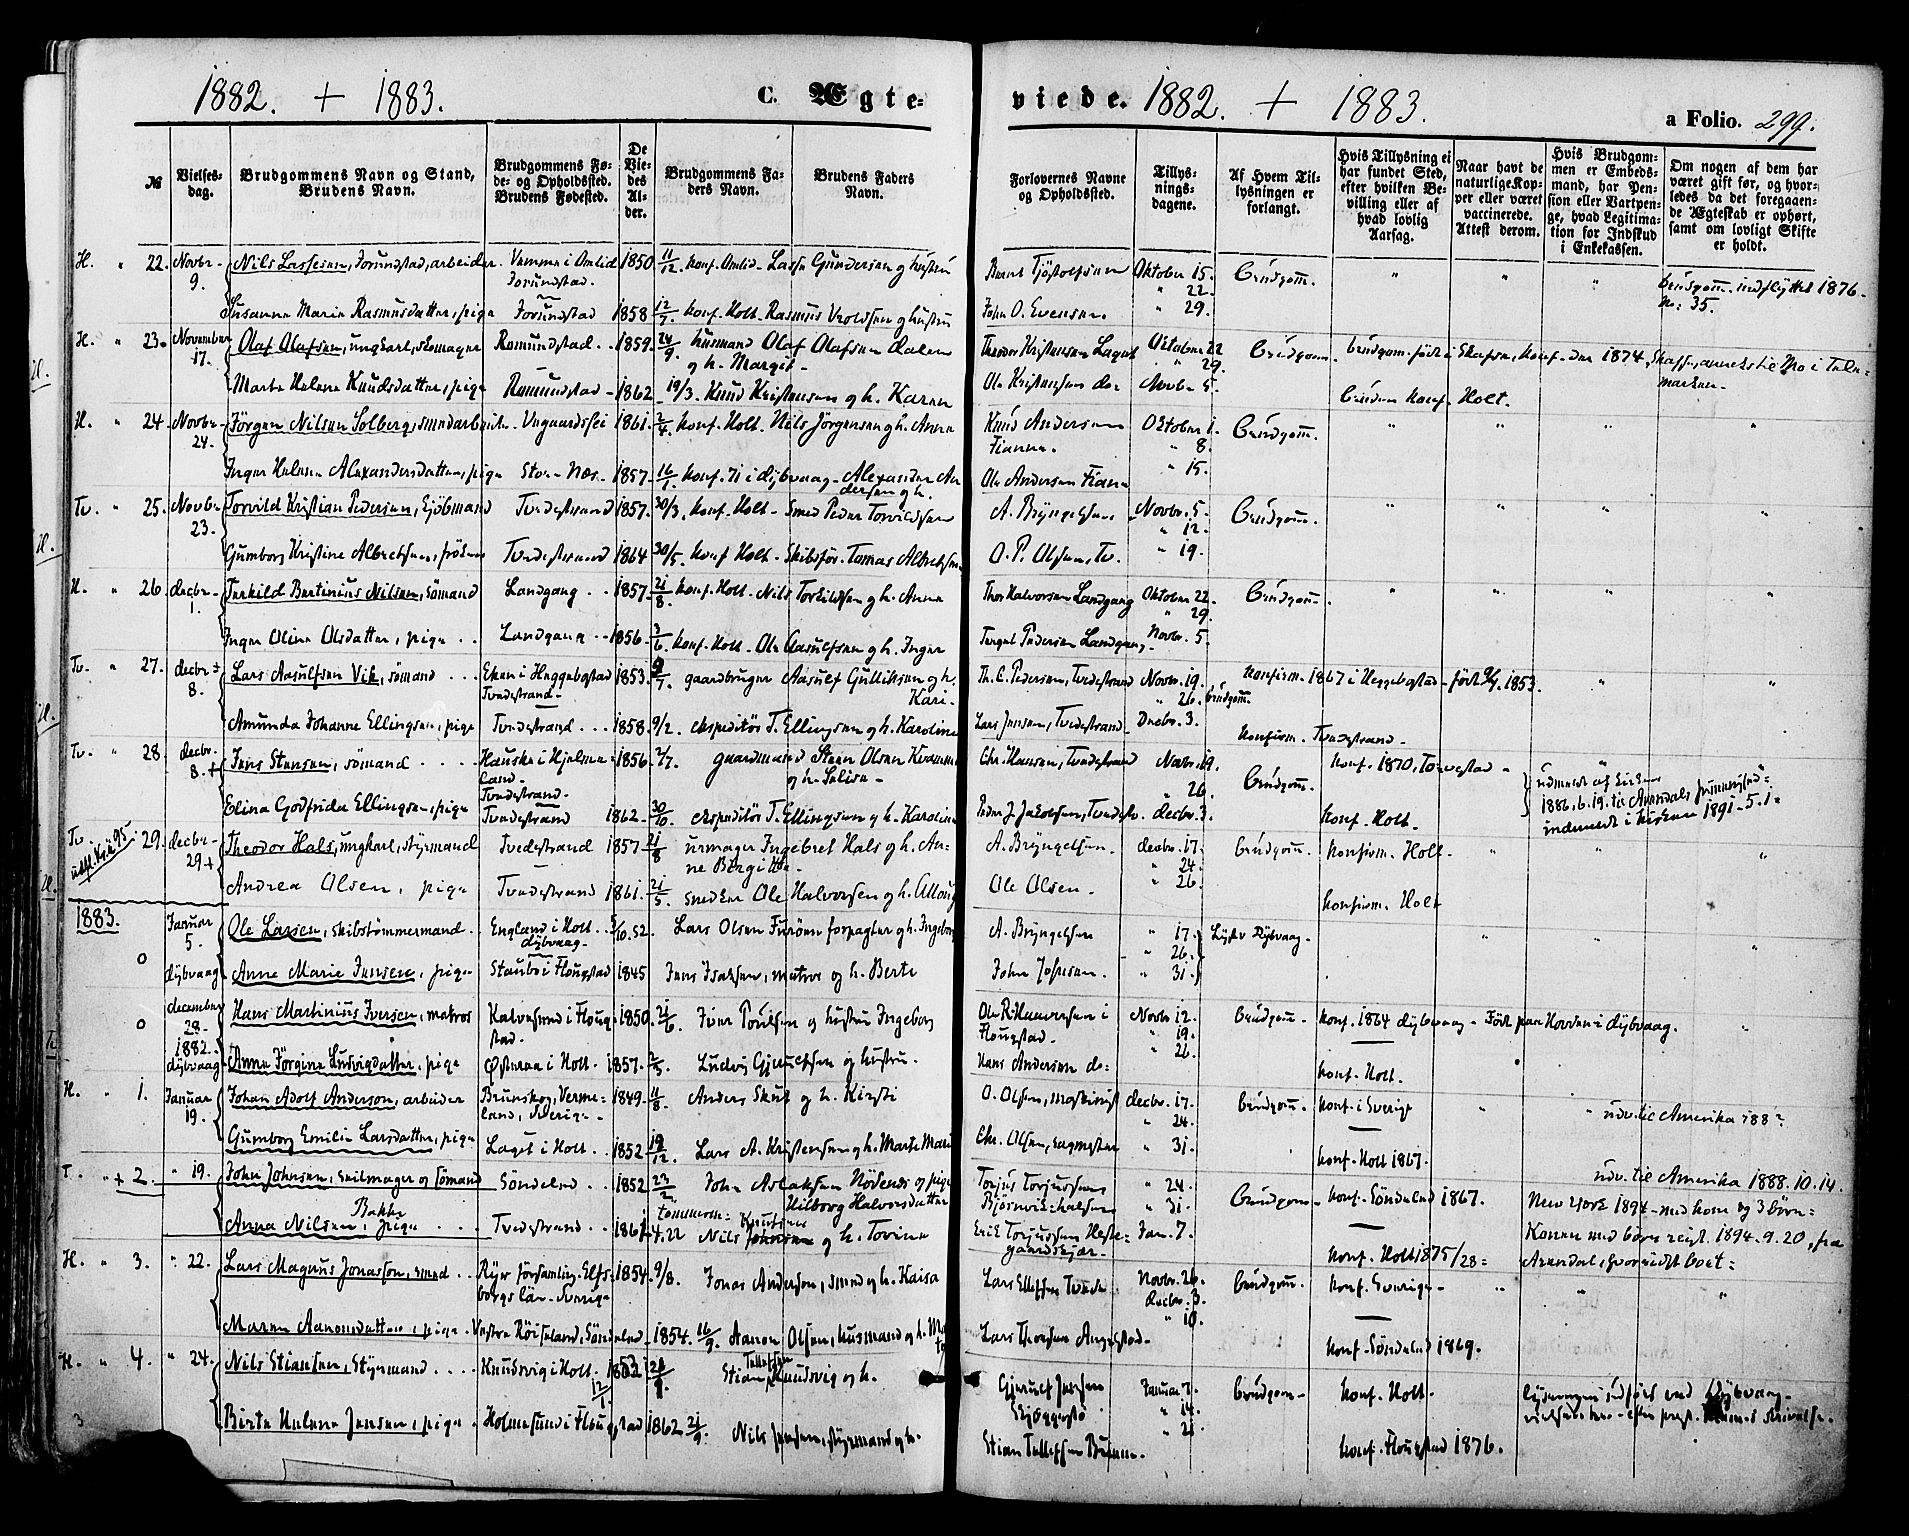 1882. + 1883. C. Ægte-
viede. 1882. + 1883. a Folio. 299.
№
Vielses-
dag.
Brudgommens Navn og Stand,
Brudens Navn.
Brudgommens Fø-
de- og Opholdssted.
Brudens Fødested.
De
Vie-
des
Al-
der.
Brudgommens Fa-
ders Navn.
Brudens Faders
Navn.
Forlovernes Navne
og Opholdssted.
Tillys-
nings-
dagene.
Af Hvem Til-
lysningen er
forlangt.
Hvis Tillysning ei
har fundet Sted,
efter hvilken Be-
villing eller af
hvad lovlig
Aarsag.
Naar havt de
naturlige Kop-
per eller været
vaccinerede.
Attest derom.
Hvis Brudgom-
men er Embeds-
mand, har Pen-
sion eller Vartpen-
ge, hvad Legitima-
tion for Indskud
i Enkekassen.
Om nogen af dem har
været gift før, og hvor-
ledes da det foregaaen-
de Ægteskab er ophørt,
samt om lovligt Skifte
er holdt.
H. " 22. Novbr. 9. Nils Lassesen, Jorundstad, arbeider Vemme i Omlid Jorundstad. 1850 11/12 konf. Omlid - Lasse Gundersen og hustru
Oktober 15. 22. Brudgom. " " " brudgom. indflyttet 1876 - No: 35.
Susanne Marie Rasmusdatter, pige Jorundstad 1858 12/7 konf. Holt - Rasmus Vroldsen og hustru
John O. Evensen. " 29.
H. " 23. November 17. Olaf Olafsen, ungkarl, skomager Romundstad .. 1859. 24/9. husmand Olaf Olafsen Dalen og h. Margit -
Theodor Kristensen Laget Oktober 22 " 29. Brudgom. brudgom. født i Skafse, konf. der 1874, Skafse, anneks til Mo i Tele-
marken -
Marte Helene Knudsdatter, pige Romundstad - 1862 - 19/3. Knud Kristensen og h. Karen
Ole Kristensen do - Novbr. 5. bruden konf. Holt.
H. " 24. Novbr. 24. Jörgen Nilsen Solberg, smedarbeider Ungaardsei 1861. 2/4. konf. Holt. Nils Jörgensen og h. Anne
Knud Andersen Fianne. Oktober 1. 8 Brudgom. " " " "
Inger Helene Alexandersdatter, pige Store-Næs - 1857 - 16/7. konf. 71 i dybvaag - Alexander An-
dersen og h.
Ole Andersen Fiane " 15.
Tv. " 25. Novbr. 23. Torvild Kristian Pedersen, Sjöbmand Tvedestrand 1857. 30/3. konf. Holt - Smed Peder Torvildsen
A. Bryngelsen Novbr. 5. " 12. Brudgom. " " " "
Gumborg Kristine Albretsen, fröken Tvedestrand 1864 30/5. konf Holt - Skibsfør. Tomas Albretsen
O. P. Olsen, Tv. " 19.
H. " 26. decbr. 1. Terkild Bertinius Nilsen, sömand Landgang .. 1857. 21/8. konf. Holt. Nils Torkildsen og h. Anne
Thor Halvorsen Landgang Oktober 22. 29. Brudgom. " " " "
Inger Oline Olsdatter, pige .. Landgang .. 1856. 3/6. konf. Holt. Ole Aasulfsen og h. Inger
Terget Pedersen Landgang - Novbr. 5.
Tv. " 27. decbr. 8. Lars Aasulfsen Vik, sømand ... Eken i Heggebostad Tvedestrand - 1853. 9/7. gaardbruger Aasulf Gulliksen og h. Kari -
Th. C. Pedersen, Tvedestrand Novbr. 19. " 26. brudgom. Konfirm. 1867 i Heggebostad - født 9/7. 1853. " "
Amunda Johanne Ellingsen, pige Tvedestrand ... 1858. 9/2. ekspeditör T. Ellingsen og h. Karoline
Lars Jensen, Tvedestrand - Decbr. 3. konfirm. Tvedestrand -
Tv. " 28. decbr. 8. + Jens Stensen, sømand .... Hauske i Hjelme-
land - Tvedestrand - 1856. 2/7. gaardmand Steen Olsen og h. Selise -
Chr. Hansen, Tvedestrand Novbr. 19. " 26. Brudgom. konf. 1870, Torvestad - udmeldt af kirken
1886. 6. 19. til Arendals frimenighed =
indmeldt i kirken 1891 - 5. 1 =
Elina Godfrida Ellingsen, pige Tvedestrand 1862. 30/10. ekspeditör T. Ellingsen og h. Karoline
Peder J. Jakobsen, Tvedestr. decbr. 3. konf. Holt.
Tv. " 29. decbr. 29 + Theodor Hals, ungkarl, styrmand Tvedestrand 1857. 21/8 urmager Ingebret Hals og h. An-
ne Birgitte.
A. Bryngelsen. decbr. 17. " 24. Brudgom. konfirm. Holt - " " "
Andrea Olsen, pige Tvedestrand 1861. 21/5. smeden Ole Halvorsen og h. Alloug
Ole Olsen - " 26 konfirm. Holt
1883. Januar 5. Ole Larsen, skibstömmermand. England i Holt .. dybvaag - 5/10. 52. Lars Olsen Furöen forpagter og h. Ingeborg
A. Bryngelsen " 17. " 26. Lyste Dybvaag. " " "
0 dybvaag Anne Marie Jensen, pige Staubø i Flougstad 1845 Jens Isaksen, matros og h. Berte
John Johnsen. " 31.
0 december 28. 1882. dybvaag Hans Martinius Iversen, matros Kalvesund i Floug-
stad. 1850. 21/6. Iver Poulsen og hustru Ingeborg
Flougstad. Novbr. 12. " 19. Brudgom - konf. 1864 dybvaag - Født paa Hovden i dybvaag. "
Anne Jörgine Ludvigdatter, pige Østeraa i Holt - 1857. 2/5. Ludvig Gjeruldsen og hustru.
Hans Andersen do - " 26 konf. Holt.
H. " 1. Januar 19. Johan Adolf Anderson, arbeider Brunskog, Verme-
land, Sverige - 1849. 11/8. Anders Skut og h. Kirsti
O. Olsen, maskinist decbr. 17. " 24. Brudgom. konf. i Sverige " " udv. til Amerika 188?
Gumborg Emilie Larsdatter, pige Laget i Holt .. 1852. 19/12. Lars A. Kristensen og h. Marte Marie
Chr. Olsen, sagmester " 31. konf. Holt 1867.
T. " + 2. " 19. John Johnsen, seilmager og sömand Söndeled .. 1852 23/2 John Aslaksen Nödenes og pige
Hilborg Halvorsdatter
Torjus Torjussen " 24. " 31. Brudgom - konf. Söndeled 1867. udv. til Amerika 1888. 10. 14.
Anna Nilsen Bakke, pige ... Tvedestrand ... 1861. 4. 22 tömmerm: Nils Knutsen og h. Tovine
Erik Torjussen Heste-
gaardskjær - Jan. 7. konf. Holt 1875/28 =
New York 1894 - med kone og 3 börn =
Konen med börn reist 1894. 9. 20, fra
Arendal, hvor sidst boet =
H. " 3. " 22. Lars Magnus Jonasson, smed .. Ryr forsamling Elfs-
borgs län - Sverige 1854. 9/8. Jonas Anderson, smed og h. Kaisa
Lars Ellefsen Tvede Novbr. 26. decbr. 3. " 10. Brudgom. konf. Sverige - " " "
Maren Aanonsdatter, pige. Vestre Röiseland, Söndeled - 1854. 16/9. Aanon Olsen, husmand og h.
Lars Thorsen Angelstad - konf. Söndeled 1869.
H. " 4. " 24. Nils Stiansen, Styrmand .... Knudsvig i Holt. 12/1. Stian Tellefsen Knudsvig og h.
Gjeruld Jensen Januar 7. " 14. Brudgom - konf. Holt. lysningen udført ved Dybvaag -
Birte Helene Jensen, pige. Holmesund i Flougstad 1862 21/9. Nils Jensen, styrmand og h.
Stian Tellefsen " 21 konf. Flougstad 1876.